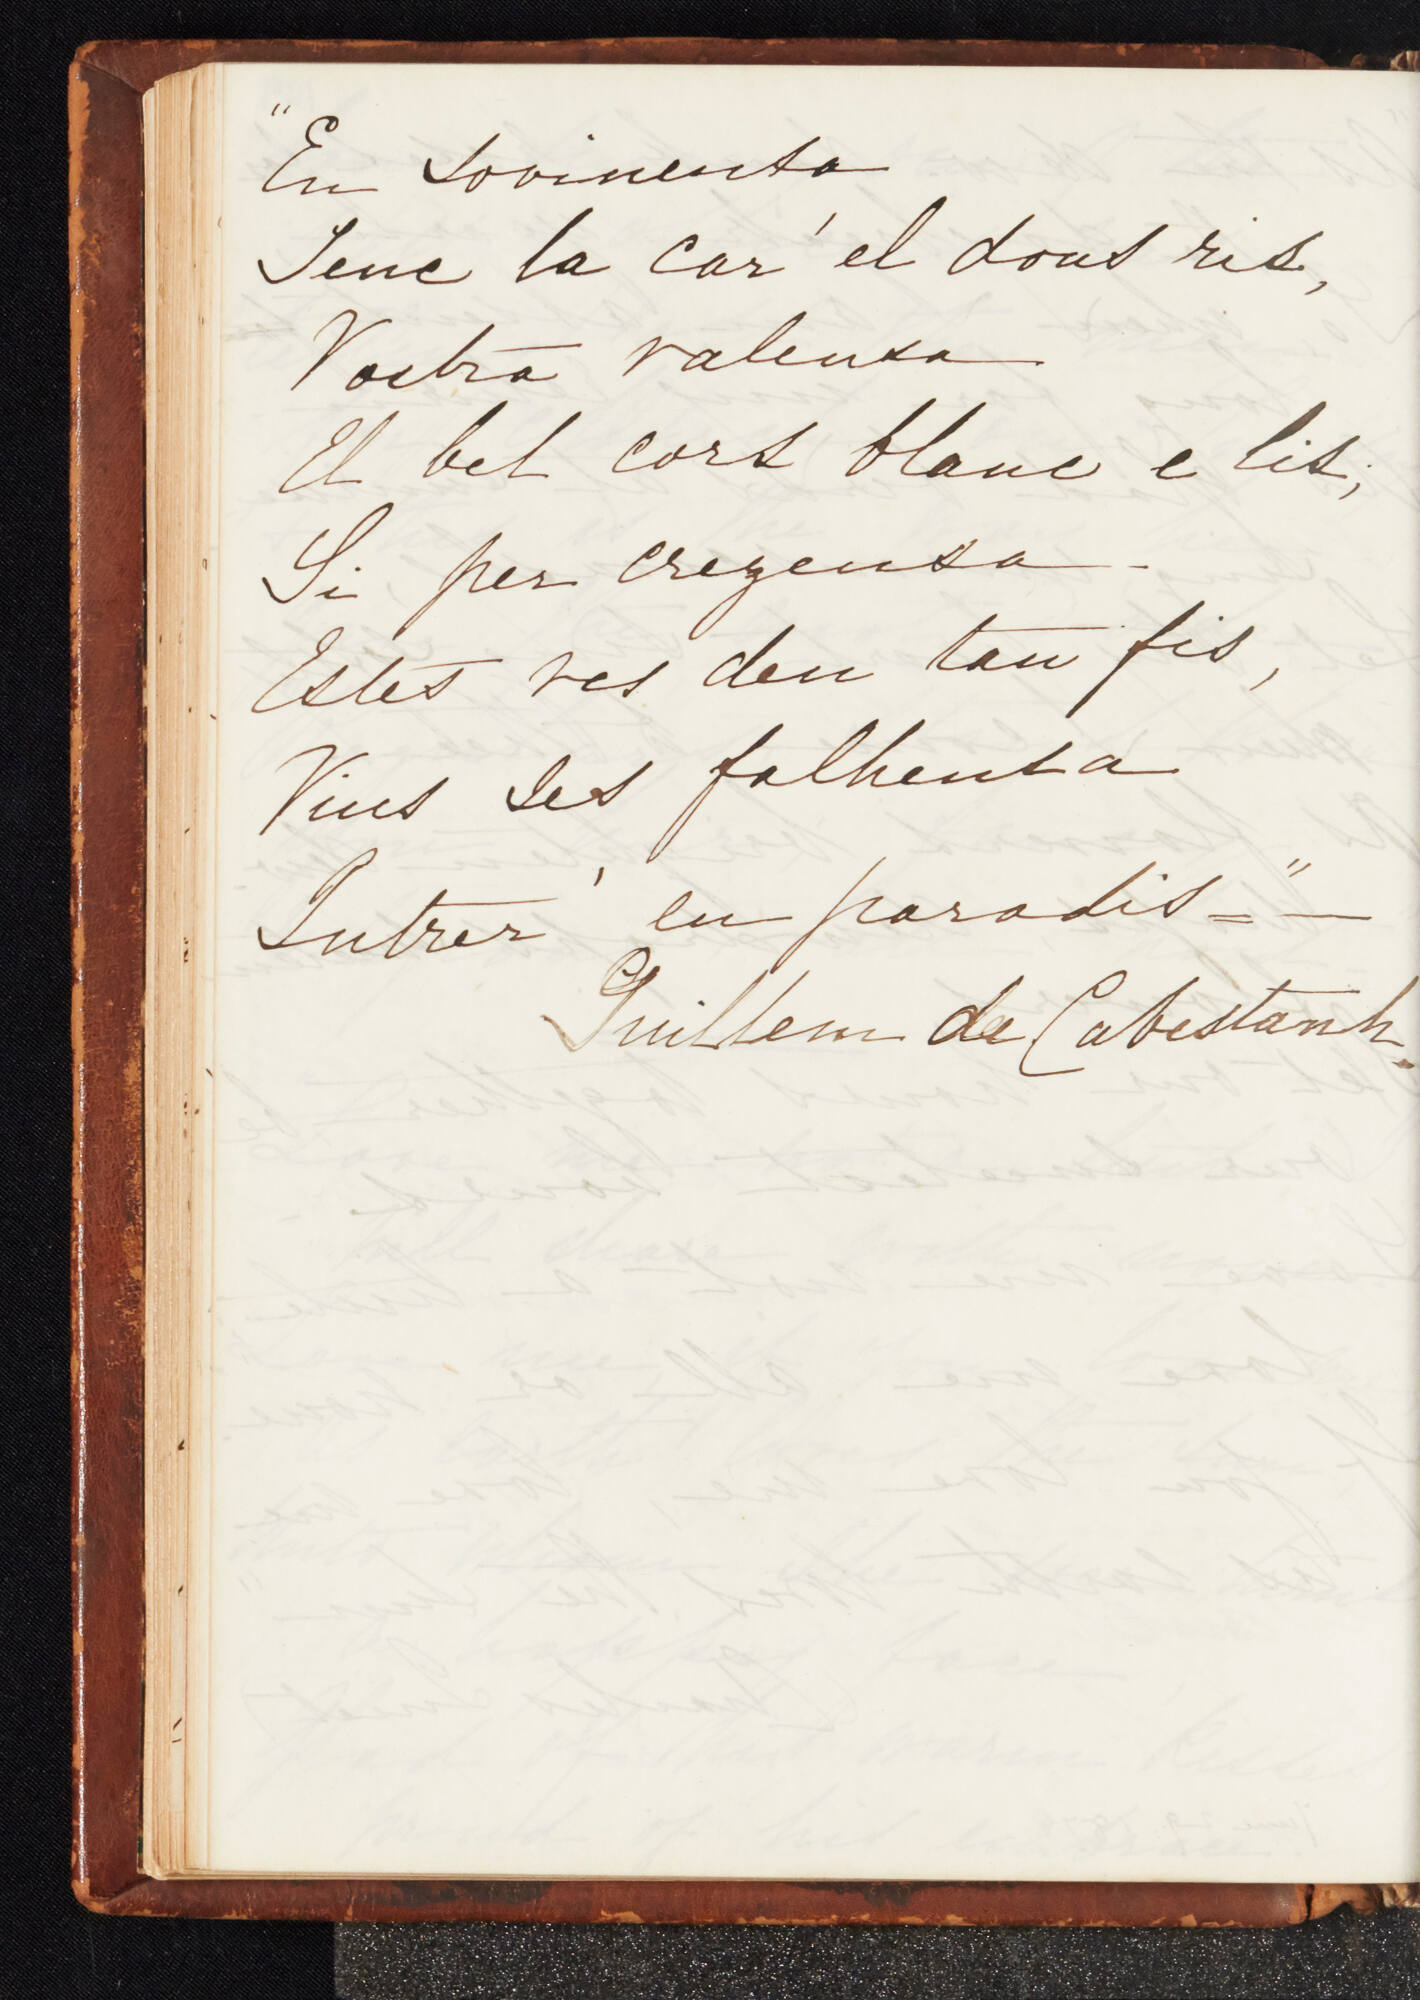 "En sovinensa
Tenc la car' el dous ris,
Vostra valensa
El bel cors blanc e lis;
Si per crezensa
Estes ves deu tan fis,
Vius ses falhensa
Intrer' en paradis="—
Guillem de Cabestanh.